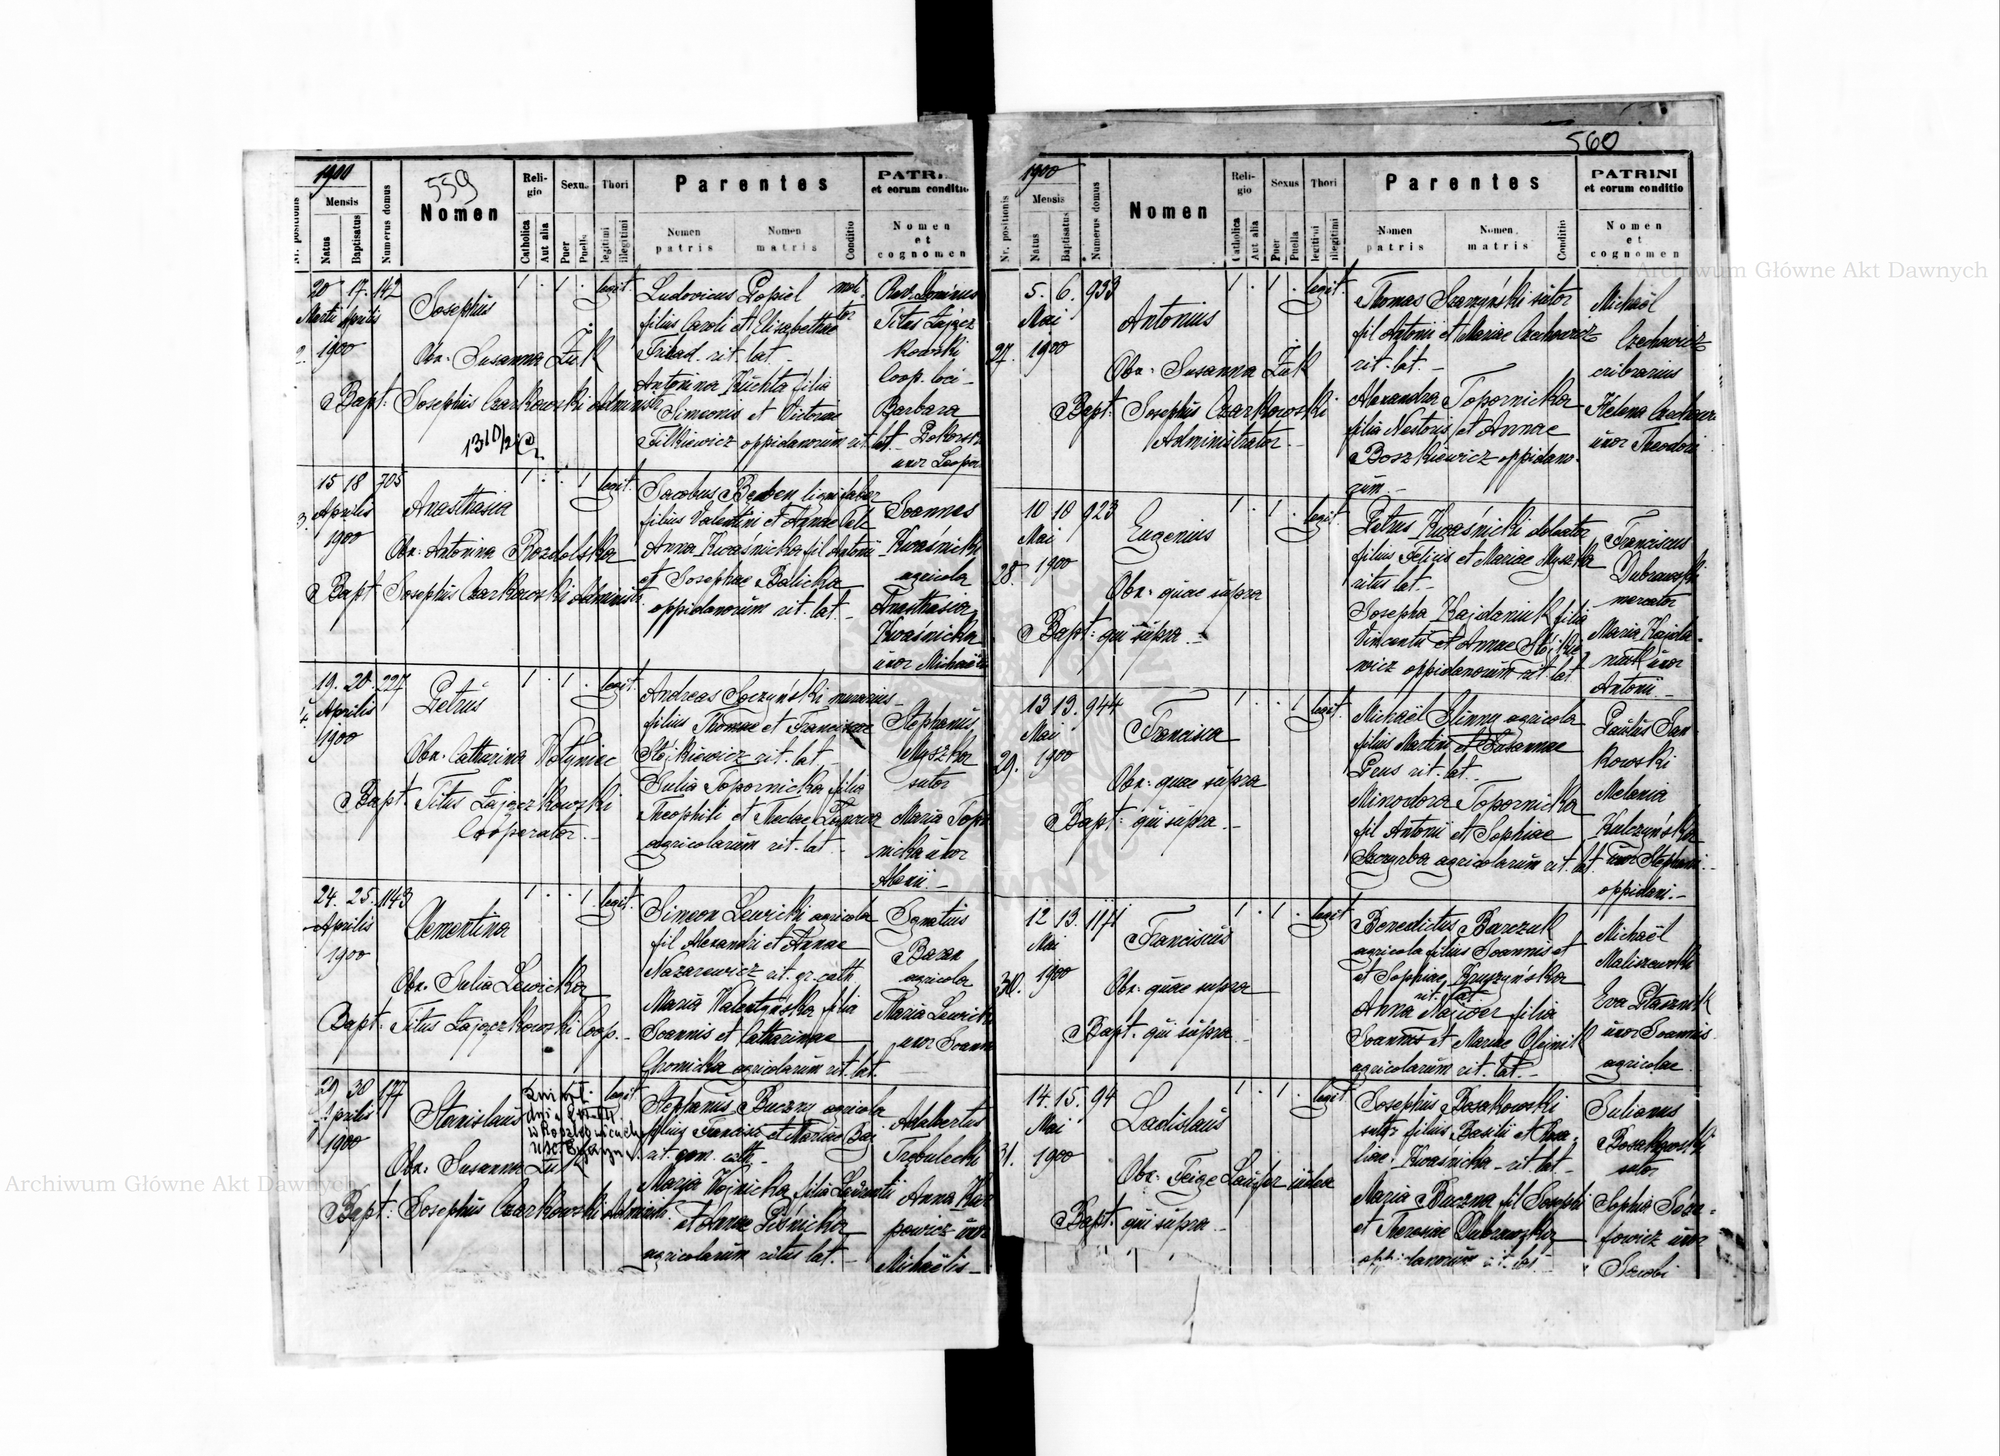 Archiwum Główne Akt Dawnych
Archiwum Główne Akt Dawnych
1900
559
Nr. positionis
Mensis
Natus
Baptisatus
Numerus domus
Nomen
Religio
Catholica
Aut alia
Sexus
Puer
Puella
Thori
legitimi
illegitimi
Parentes
Nomen patris
Nomen matris
Conditio
PATRINI
et eorum conditio
Nomen
et
cognomen
20 17. 142
Martii Aprilis
1900
Josephus
Obs. Susanna Żuk
Bapt: Josephus Czarkowski Administr.
1310/2
1 . 1 . legit.
Ludovicus Popiel molitor
filius Caroli et Elisabethae
Friead. rit. lat.
Antonina Kuchta filia
Simeonis et Victoriae
Filkiewicz oppidanorum rit. lat.
Rev. Dominus
Titus Zajączkowski
Coop. loci
Barbara
15 18 705
Aprilis
1900
Anasthasia
Obs. Antonina Rozdolska
Bapt Josephus Czarkowski Administr.
1 . . 1 legit.
Jacobus Beben lignifaber
filius Valentini et Agnae
Anna Kwaśnicka fil. Antonii
et Josephae Balicka
oppidanorum rit. lat.
Joannes
Kwaśnicki
agricola
Anasthasia
Kwaśnicka
uxor Michaëlis
19. 20. 227
Aprilis
1900
Petrus
Obs. Catharina Wołyniec
Bapt. Titus Zajączkowski
Cooperator.
1 . 1 . legit.
Andreas Soczyński murarius
filius Thomae et Franciscae
Stójkiewicz rit. lat.
Julia Topornicka filia
Theophili et Theclae
agricolarum rit. lat.
Stephanus
Myszka
sutor
Maria Topornicka uxor
24. 25. 1143
Aprilis
1900
Clementina
Obs. Julia Lewicka
Bapt. Titus Zajączkowski Coop.
1 . . 1 . legit.
Simeon Lewicki agricola
fil Alexandri et Annae
Nazarewicz rit. gr. cath
Maria Walentyńska filia
Joannis et Catharinae
Chromicka agricolarum rit. lat.
Ignatius
Baran
agricola
Maria Lewicka
uxor Joannis
29 30 177
Aprilis
1900
Stanislaus
Obs. Susanna Żuk
Bapt: Josephus Czarkowski Administr.
legit
Stephanus Buczny agricola
filius Francisci et Mariae
rit. rom. cath.
Maria Wojnicka filia Laurentii
et Annae Leśnicka
agricolarum ritus lat.
Adalbertus
Trebulecki
Anna Karpowicz uxor
Michaëlis
560
1900
Nr. positionis
Mensis
Natus
Baptisatus
Numerus domus
Nomen
Religio
Catholica
Aut alia
Sexus
Puer
Puella
Thori
legitimi
illegitimi
Parentes
Nomen patris
Nomen matris
Conditio
PATRINI
et eorum conditio
Nomen
et
cognomen
27.
5. 6. 933
Mai
1900
Antonius
Obs. Susanna Żuk
Bapt. Josephus Czarkowski
Administrator.
1 . 1 . legit.
Thomas Szarzyński sutor
fil Antonii et Mariae Czechowicz
rit. lat.
Alexandra Topornicka
filia Nestoris et Annae
Boszkiewicz oppidanorum.
Michaël
Czechowicz
cribrarius
Helena
uxor Theodori
28.
10 10 923
Mai
1900
Eugenius
Obs. quae supra
Bapt: qui supra.
1 . 1 . legit.
Petrus Kwaśnicki
filius Felicis et Mariae Myszka
ritus lat.
Josepha Kajdaniuk filia
Vincentii et Annae
oppidanorum rit. lat
Franciscus
Dubrawski
mercator
Maria Kajdaniuk uxor
Antonii
29.
13 13. 944
Mai
1900
Francisca
Obs. quae supra
Bapt: qui supra.
1 . . 1 legit.
Michaël Glinny agricola
filius Martini et Susannae
Peus rit. lat.
Minodora Topornicka
fil Antonii et Sophiae
Szczyrba agricolarum rit. lat.
Paulus Jankowski
Melania
Kulczyńska
uxor Stephani
oppidani.
30.
12 13. 1171
Mai
1900
Franciscus
Obs. quae supra
Bapt. qui supra.
1 . 1 . legit
Benedictus Barczuk
agricola filius Joannis et
et Sophiae Kruszyńska
rit. lat.
Anna Majwer filia
Joannis et Mariae Olejnik
agricolarum rit. lat.
Michaël
Maliszewski
Eva Ptasznik
uxor Joannis
agricolae
31.
14. 15. 94
Mai
1900
Ladislaus
Obs. Feige Laufer iudea
Bapt. qui supra.
1 . 1 . legit
Josephus Bosakowski
sutor filius Basilii et Rosaliae
Kwaśnicka rit. lat.
Maria Buczna fil Josephi
et Theresiae Dubrawska
oppidanorum rit. lat.
Julianus
Bosakowski
sutor
Sophia Józefowicz uxor
Jacobi